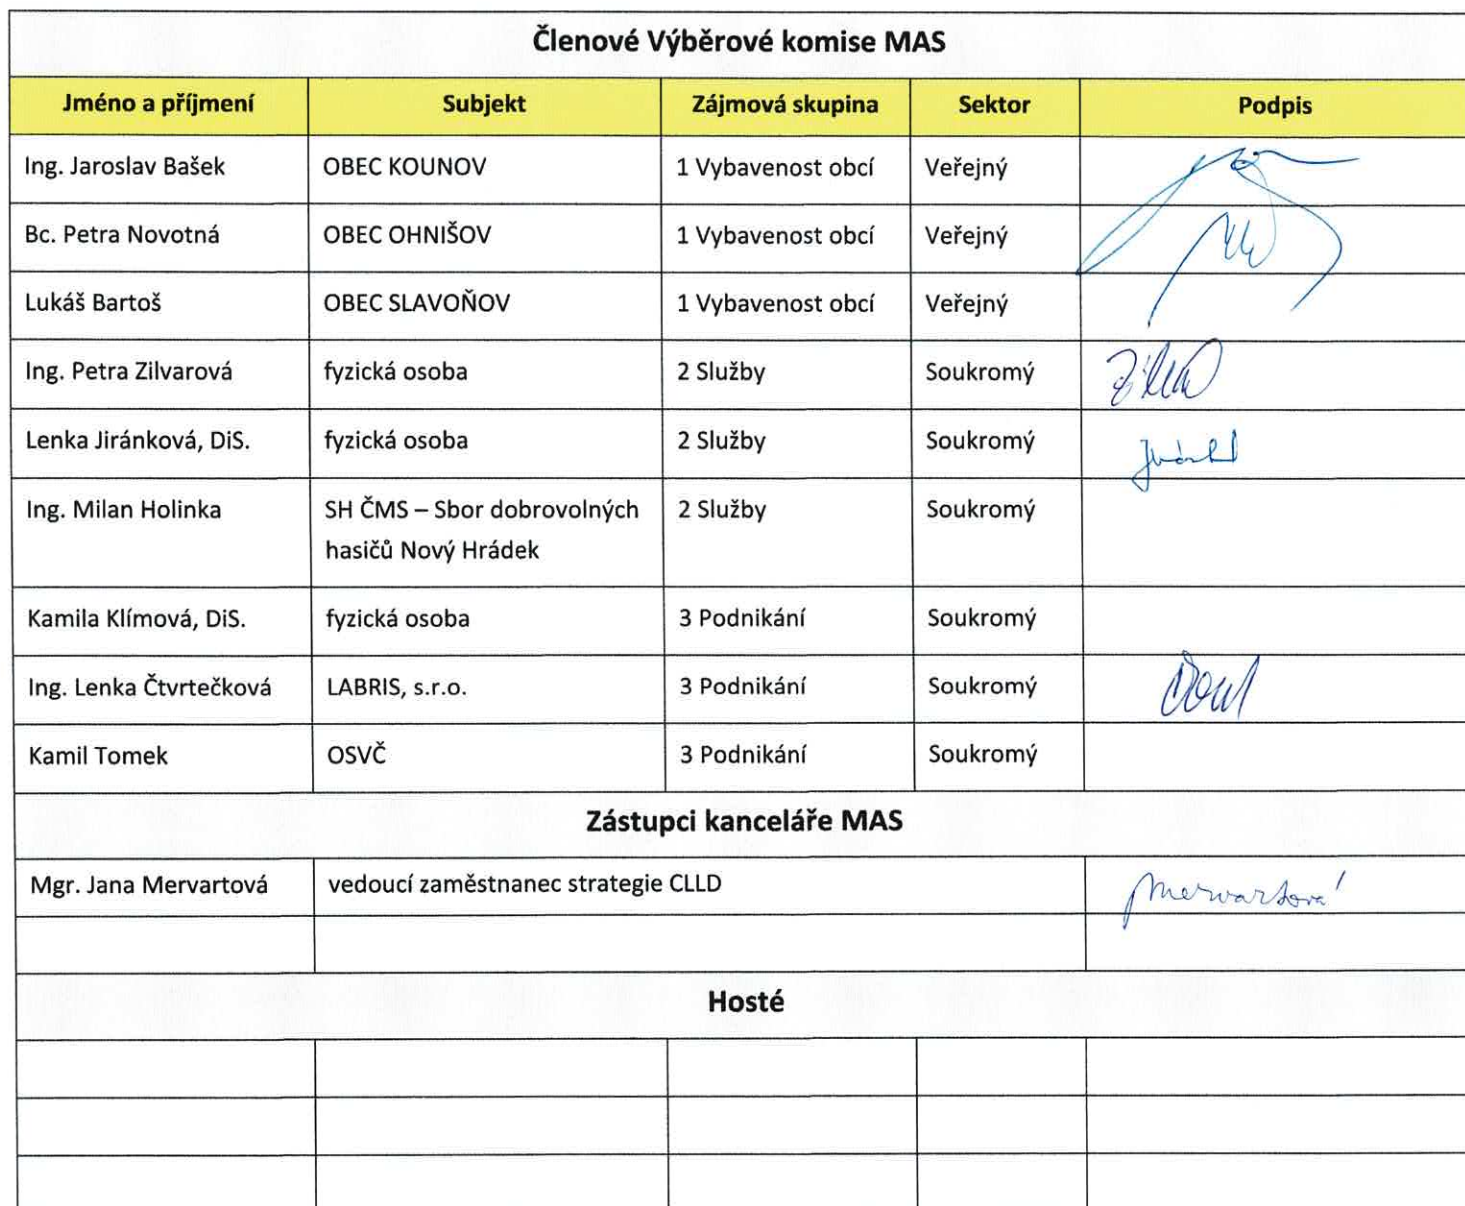 Členové Výběrové komise MAS
Jméno a příjmení Subjekt Zájmová skupina Sektor Podpis
Ing. Jaroslav Bašek OBEC KOUNOV 1 Vybavenost obcí Veřejný
Bc. Petra Novotná OBEC OHNIŠOV 1 Vybavenost obcí Veřejný
Lukáš Bartoš OBEC SLAVOŇOV 1 Vybavenost obcí Veřejný
Ing. Petra Zilvarová fyzická osoba 2 Služby Soukromý
Lenka Jiránková, DiS. fyzická osoba 2 Služby Soukromý
Ing. Milan Holinka SH ČMS – Sbor dobrovolných 2 Služby Soukromý
hasičů Nový Hrádek
Kamila Klímová, DiS. fyzická osoba 3 Podnikání Soukromý
Ing. Lenka Čtvrtečková LABRIS, s.r.o. 3 Podnikání Soukromý
Kamil Tomek OSVČ 3 Podnikání Soukromý
Zástupci kanceláře MAS
Mgr. Jana Mervartová vedoucí zaměstnanec strategie CLLD Mervartová
Hosté